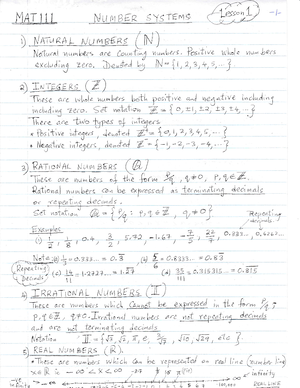 MAT 111 NUMBER SYSTEMS Lesson 1 -1-
1) NATURAL NUMBERS (ℕ)
Natural numbers are counting numbers. Positive whole numbers
excluding zero. Denoted by ℕ = {1, 2, 3, 4, 5, ...}
2) INTEGERS (ℤ)
These are whole numbers both positive and negative including
including zero. Set notation ℤ = {0, ±1, ±2, ±3, ±4, ...}
There are two types of integers
• Positive integers, denoted ℤ⁺ = {0, 1, 2, 3, 4, 5, ...}
• Negative integers, denoted ℤ⁻ = {-1, -2, -3, -4, ...}
3) RATIONAL NUMBERS (ℚ)
These are numbers of the form p/q, q≠0, p, q ∈ ℤ.
Rational numbers can be expressed as terminating decimals
or repeating decimals.
Set notation ℚ = {p/q : p, q ∈ ℤ, q ≠ 0}
Repeating decimals
Examples
(i) 1/2, 1/8, 0.4, 3/2, 5.72, -1.67, -7/5, 0.333...,
Note: (1) 1/3 = 0.333... = 0.3̅ (2) 5/6 = 0.8333... = 0.83̅
Repeating Decimals
(3) 14/11 = 1.2727... = 1.2̅7̅
4) IRRATIONAL NUMBERS (𝕀)
These are numbers which cannot be expressed in the form p/q;
p, q ∈ ℤ, q≠0. Irrational numbers are not repeating decimals
and are not terminating decimals
Notation 𝕀 = {√2, π, e, √10, √29, etc}
5) REAL NUMBERS (ℝ).
These are numbers which can be represented on real line (number line)
x ∈ ℝ is -∞ < x < ∞
infinity REAL LINE